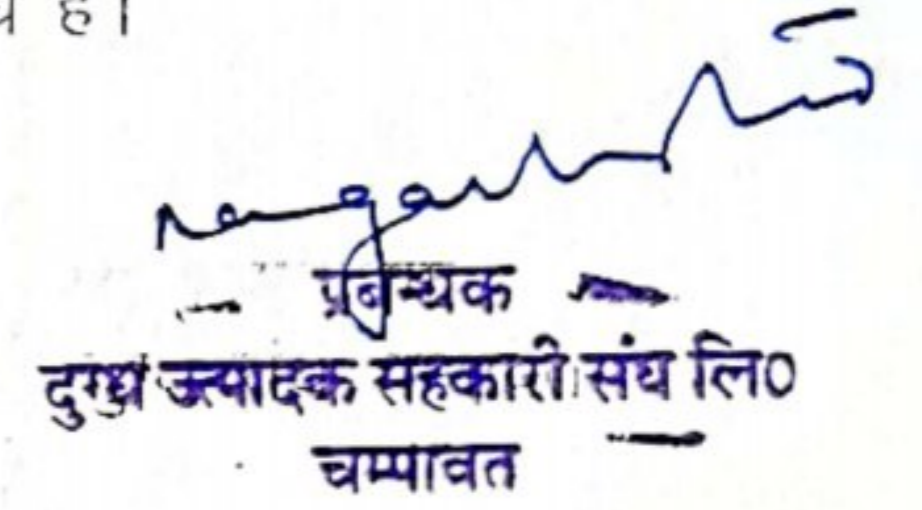 है।
प्रबन्धक
दुग्ध उत्पादक सहकारी संघ लि०
चम्पावत